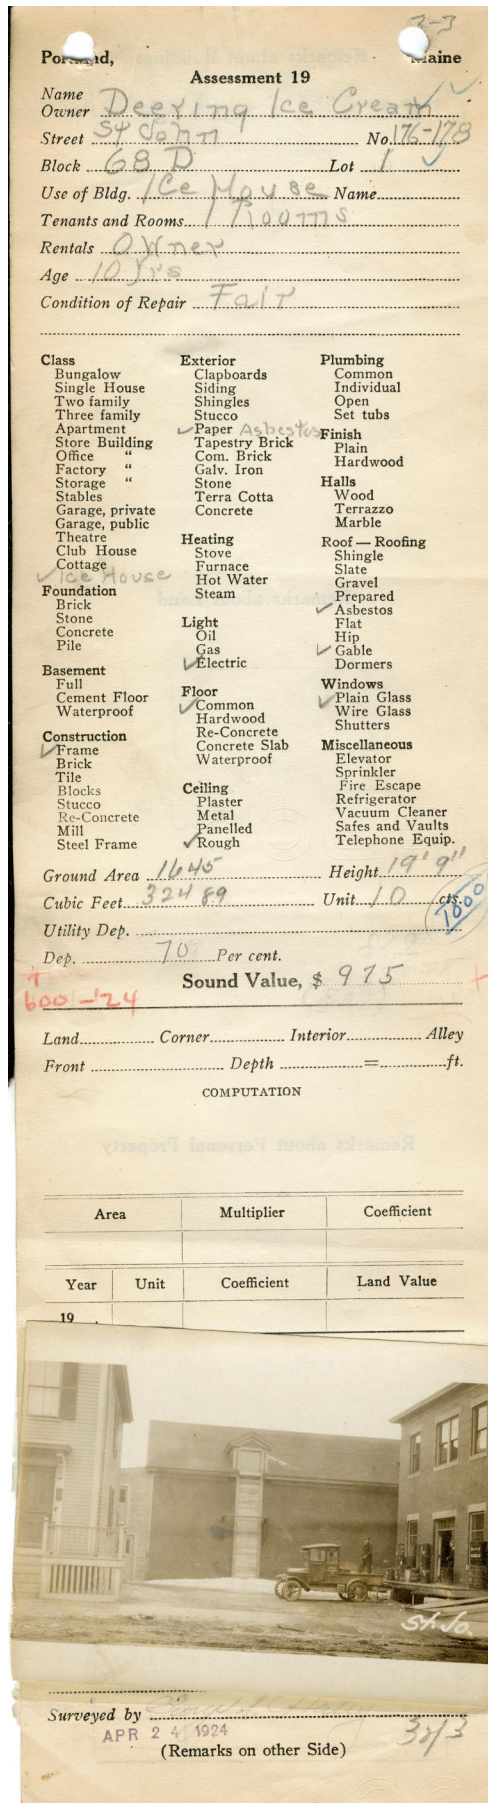 2-3
Portland, Maine
Assessment 19
Name
Owner Deering Ice Cream
Street St John No. 176-178
Block 68 D Lot 1
Use of Bldg. Ice House Name
Tenants and Rooms 1 Rooms
Rentals Owner
Age 10 yrs
Condition of Repair Fair
Class
Bungalow
Single House
Two family
Three family
Apartment
Store Building
Office "
Factory "
Storage "
Stables
Garage, private
Garage, public
Theatre
Club House
Cottage
Ice House
Foundation
Brick
Stone
Concrete
Pile
Basement
Full
Cement Floor
Waterproof
Construction
Frame
Brick
Tile
Blocks
Stucco
Re-Concrete
Mill
Steel Frame
Exterior
Clapboards
Siding
Shingles
Stucco
Paper Asbestos
Tapestry Brick
Com. Brick
Galv. Iron
Stone
Terra Cotta
Concrete
Heating
Stove
Furnace
Hot Water
Steam
Light
Oil
Gas
Electric
Floor
Common
Hardwood
Re-Concrete
Concrete Slab
Waterproof
Ceiling
Plaster
Metal
Panelled
Rough
Plumbing
Common
Individual
Open
Set tubs
Finish
Plain
Hardwood
Halls
Wood
Terrazzo
Marble
Roof — Roofing
Shingle
Slate
Gravel
Prepared
Asbestos
Flat
Hip
Gable
Dormers
Windows
Plain Glass
Wire Glass
Shutters
Miscellaneous
Elevator
Sprinkler
Fire Escape
Refrigerator
Vacuum Cleaner
Safes and Vaults
Telephone Equip.
Ground Area 1645 Height 19' 9"
Cubic Feet 32489 Unit 10 cts.
1000
Utility Dep.
Dep. 70 Per cent.
Sound Value, $ 975
+ 600 - '24 +
Land Corner Interior Alley
Front Depth = ft.
COMPUTATION
Area Multiplier Coefficient
Year Unit Coefficient Land Value
19
St. Jo.
Surveyed by
APR 24 1924
(Remarks on other Side)